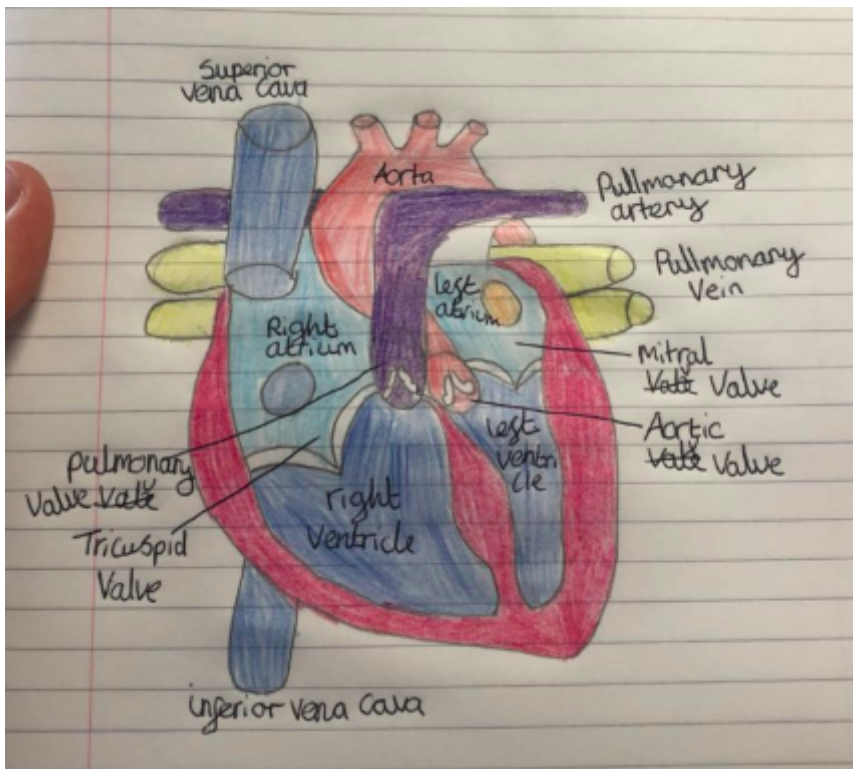 Superior
vena Cava
Aorta
Pullmonary
artery
Pullmonary
Vein
Left
atrium
Right
atrium
Mitral
Valve
Aortic
Valve
Left
ventri
cle
Pulmonary
Valve
right
Ventricle
Tricuspid
Valve
inferior vena Cava